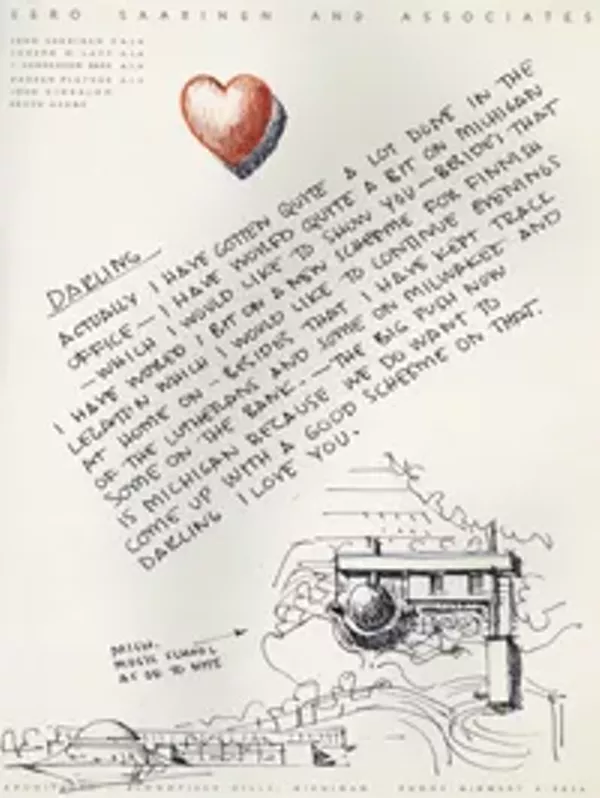 EERO SAARINEN AND ASSOCIATES
DARLING —
ACTUALLY I HAVE GOTTEN QUITE A LOT DONE IN THE
OFFICE — I HAVE WORKED QUITE A BIT ON MICHIGAN
— WHICH I WOULD LIKE TO SHOW YOU — BESIDES THAT
I HAVE WORKED A BIT ON A NEW SCHEME FOR FINNISH
LEGATION WHICH I WOULD LIKE TO CONTINUE EVENINGS
AT HOME ON — BESIDES THAT I HAVE KEPT TRACK
OF THE LUTHERANS AND SOME ON MILWAKEE AND
SOME ON THE BANK. — THE BIG PUSH NOW
IS MICHIGAN BECAUSE WE DO WANT TO
COME UP WITH A GOOD SCHEEME ON THAT.
DARLING I LOVE YOU.
MICH.
MUSIC SCHOOL
AS OF TO NITE
ARCHITECTS BLOOMFIELD HILLS, MICHIGAN PHONE MIDWEST